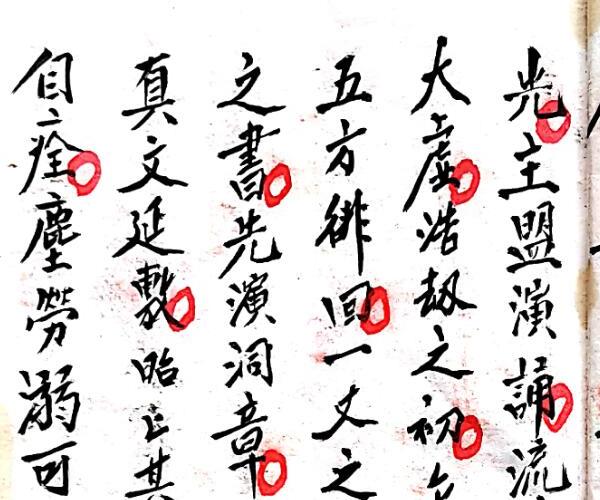 光主盟演誦流
大虛浩劫之初
五方徘回一丈之
之書先演洞章
真文延敷昭其
自痊塵勞溺可